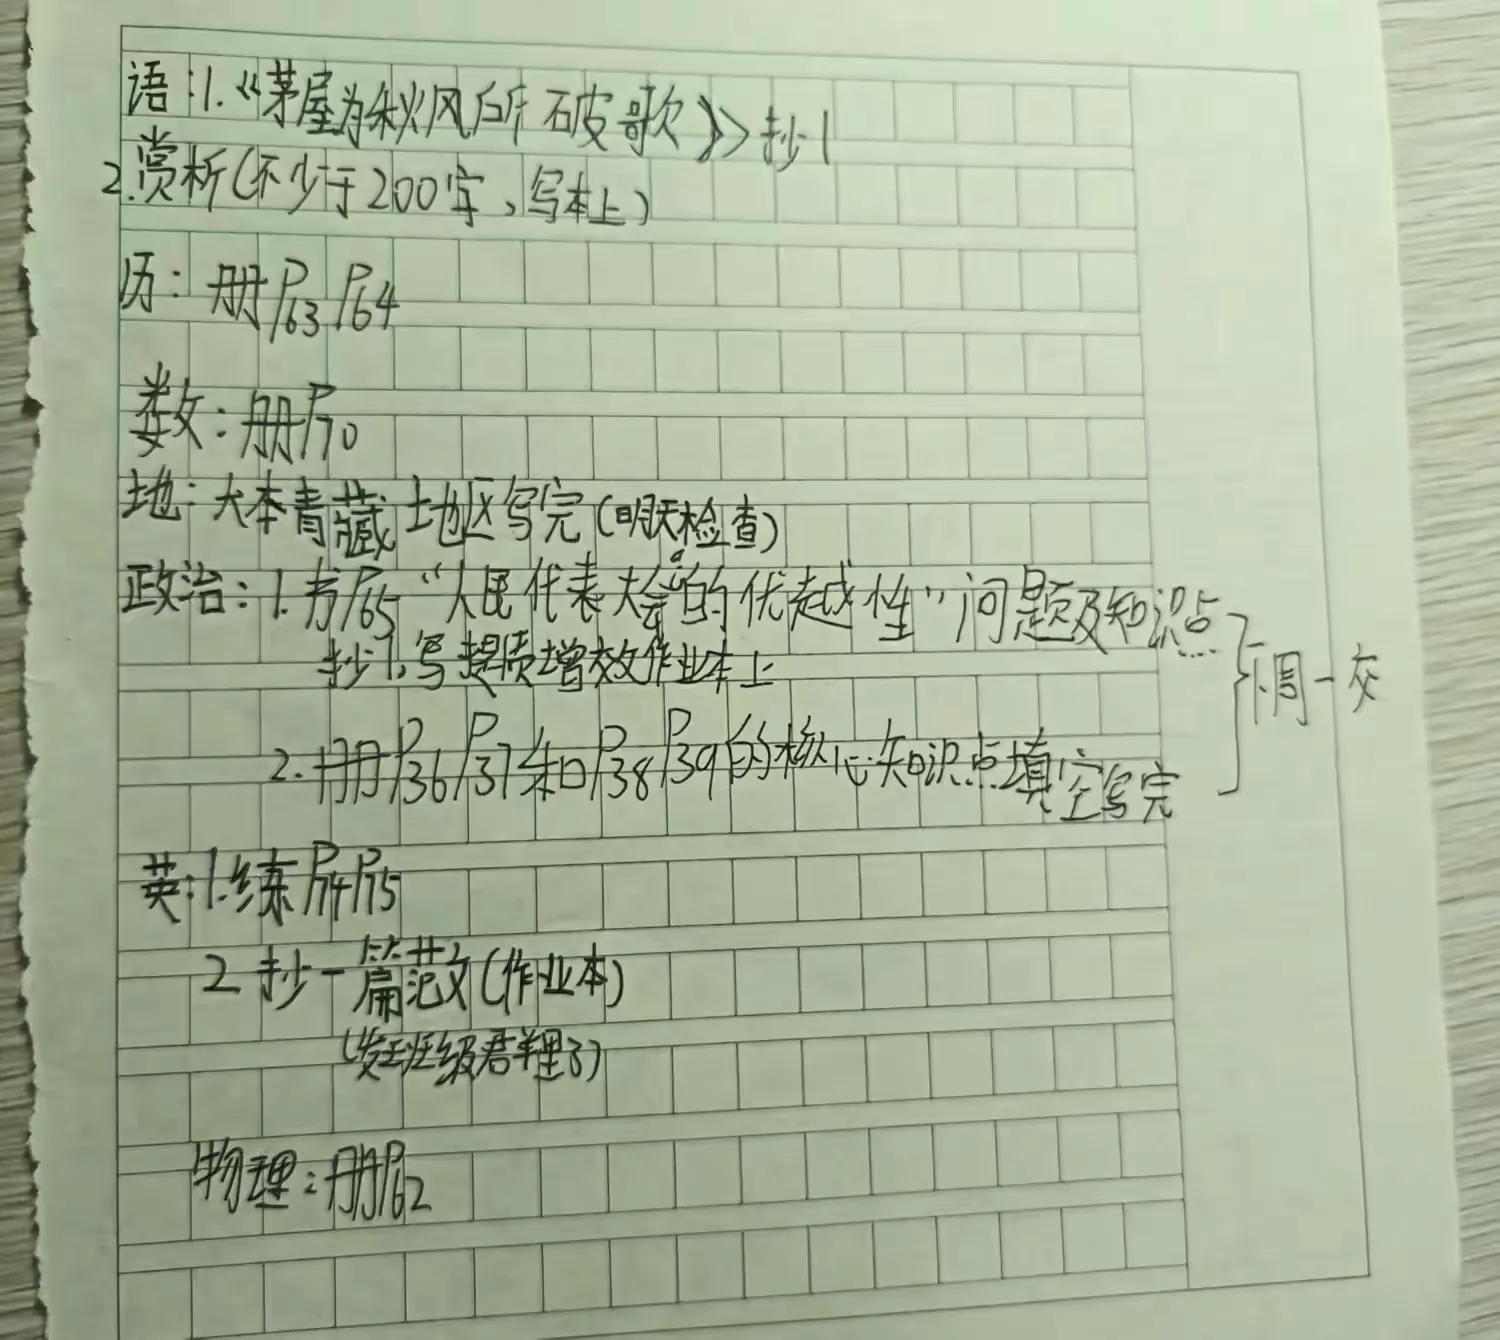 语:1.《茅屋为秋风所破歌》抄1
2.赏析(不少于200字,写本上)
历:册P63 P64
数:册P70
地:大本青藏地区写完(明天检查)
政治:1.书P65“人民代表大会的优越性”问题及知识点
抄1,写提质增效作业本上
2.册P36 P37和P38 P39的核心知识点填空写完
周一交
英:1.练P74P75
2 抄一篇范文(作业本)
(发班级群里了)
物理:册P62